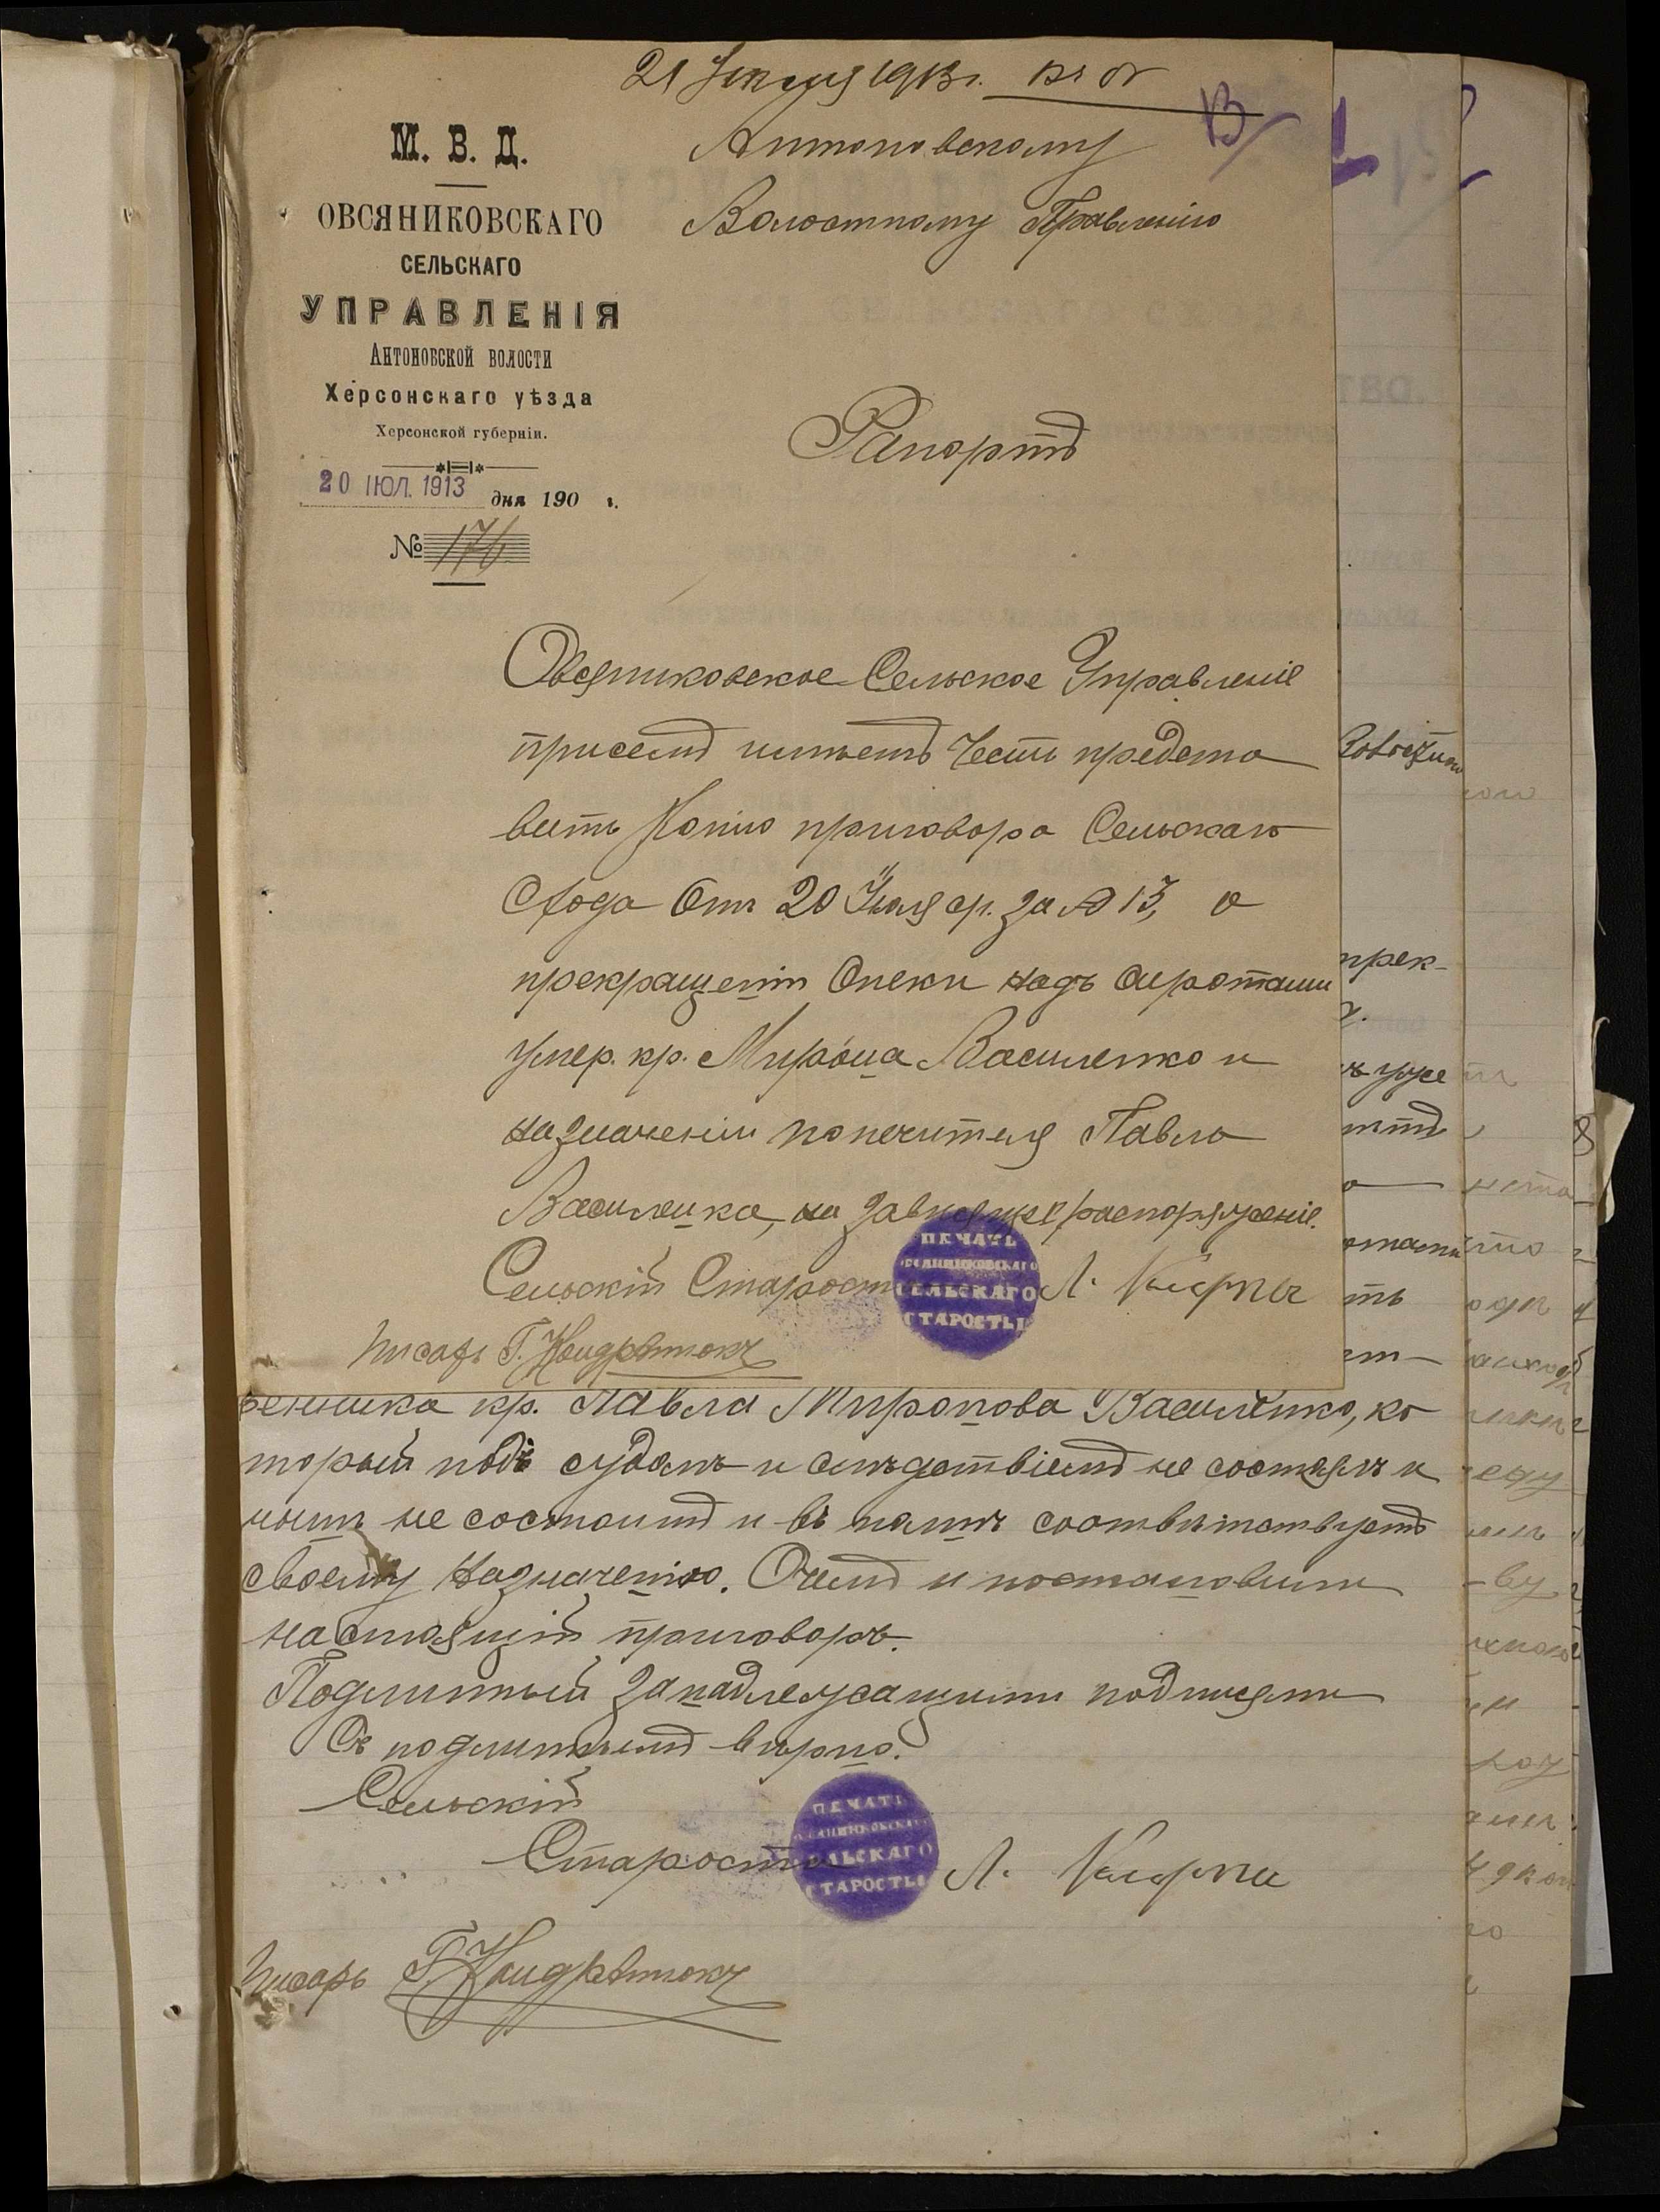 21 Июля 1913 г.
М. В. Д.
ОВСЯНИКОВСКАГО
СЕЛЬСКАГО
УПРАВЛЕНІЯ
Антоновской волости
Херсонскаго уѣзда
Херсонской губерніи.
20 ІЮЛ. 1913 дня 190 г.
№ 176
Антоновскому
Волостному Правленію
Рапортъ
Овсяниковское Сельское Управленіе
присемъ имѣетъ честь предста
вить Копію приговора Сельскаго
Схода Отъ 20 Іюля ср. за № 13, о
прекращеніи Опеки надъ сиротами
умер. кр. Мирона Василенко и
назначеніи попечителя Павла
Василенка, на зависящее распоряженіе.
Сельскій Староста Л.
ПЕЧАТЬ
ОВСЯНИКОВСКАГО
СЕЛЬСКАГО
СТАРОСТЫ
Писарь Г.
прек-
уже
венника кр. Павла Миронова Василенко, ко
торый подъ судомъ и слѣдствіемъ не состоялъ и
нынѣ не состоитъ и въ полнѣ соотвѣтствуетъ
своему назначенію. Очемъ и постановили
настоящій приговоръ.
Подлинный за надлежащими подписями
Съ подлиннымъ вѣрно.
Сельскій
Староста Л.
ПЕЧАТЬ
ОВСЯНИКОВСКАГО
СЕЛЬСКАГО
СТАРОСТЫ
Писарь Г.